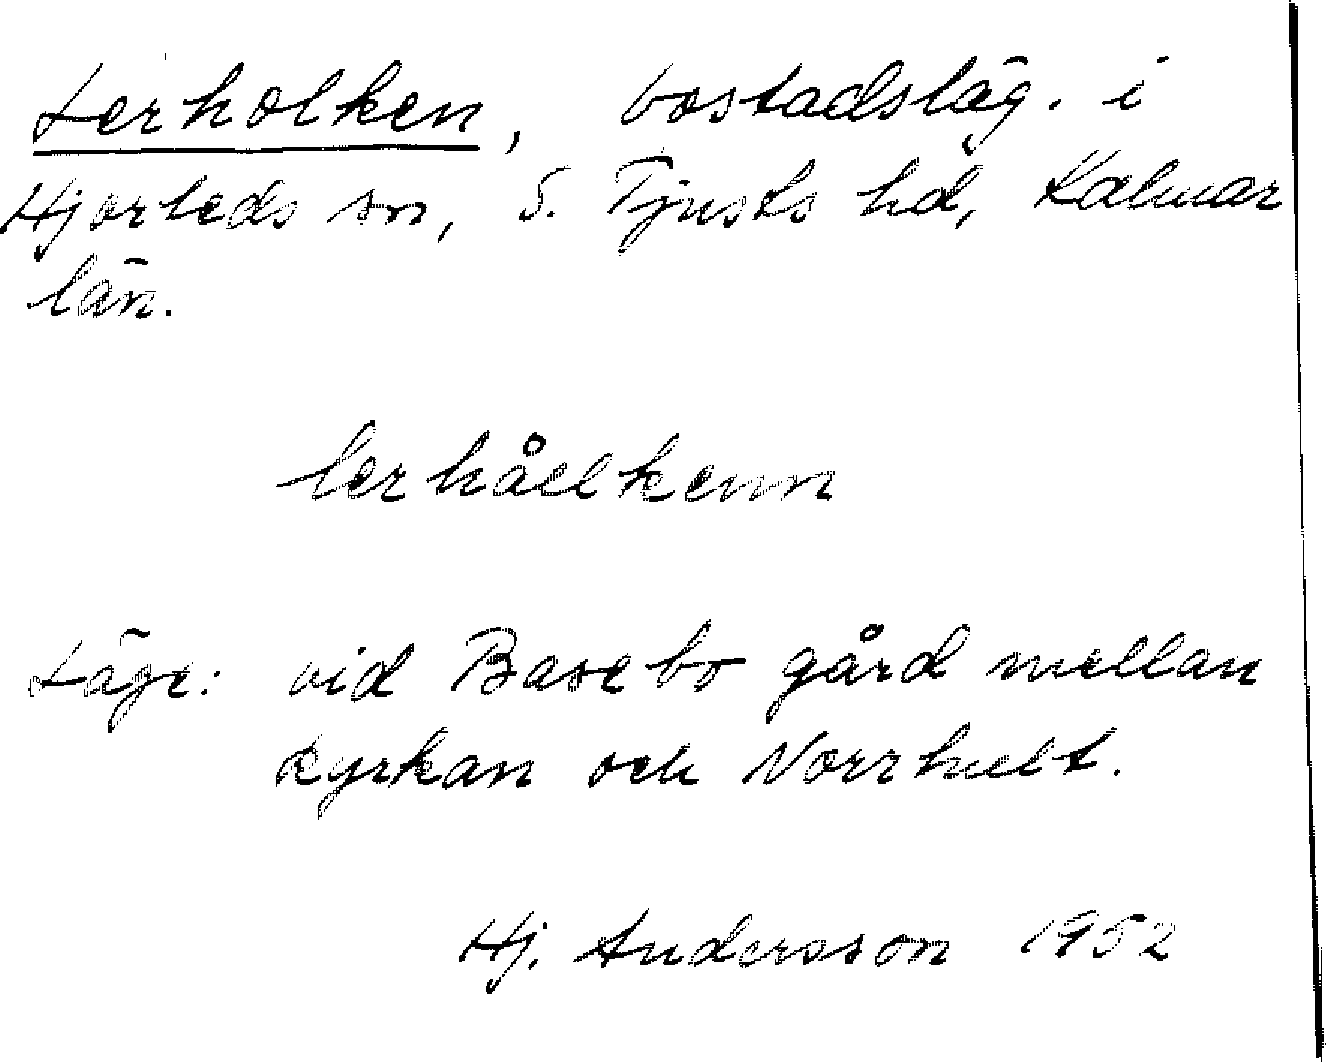 Lerholken, bostadsläg. i
Hjorteds sn, S. Tjusts hd, Kalmar
län.
lerhålkenn
Läge: vid Basebo gård mellan
kyrkan och Norrhult.
Hj. Andersson 1952